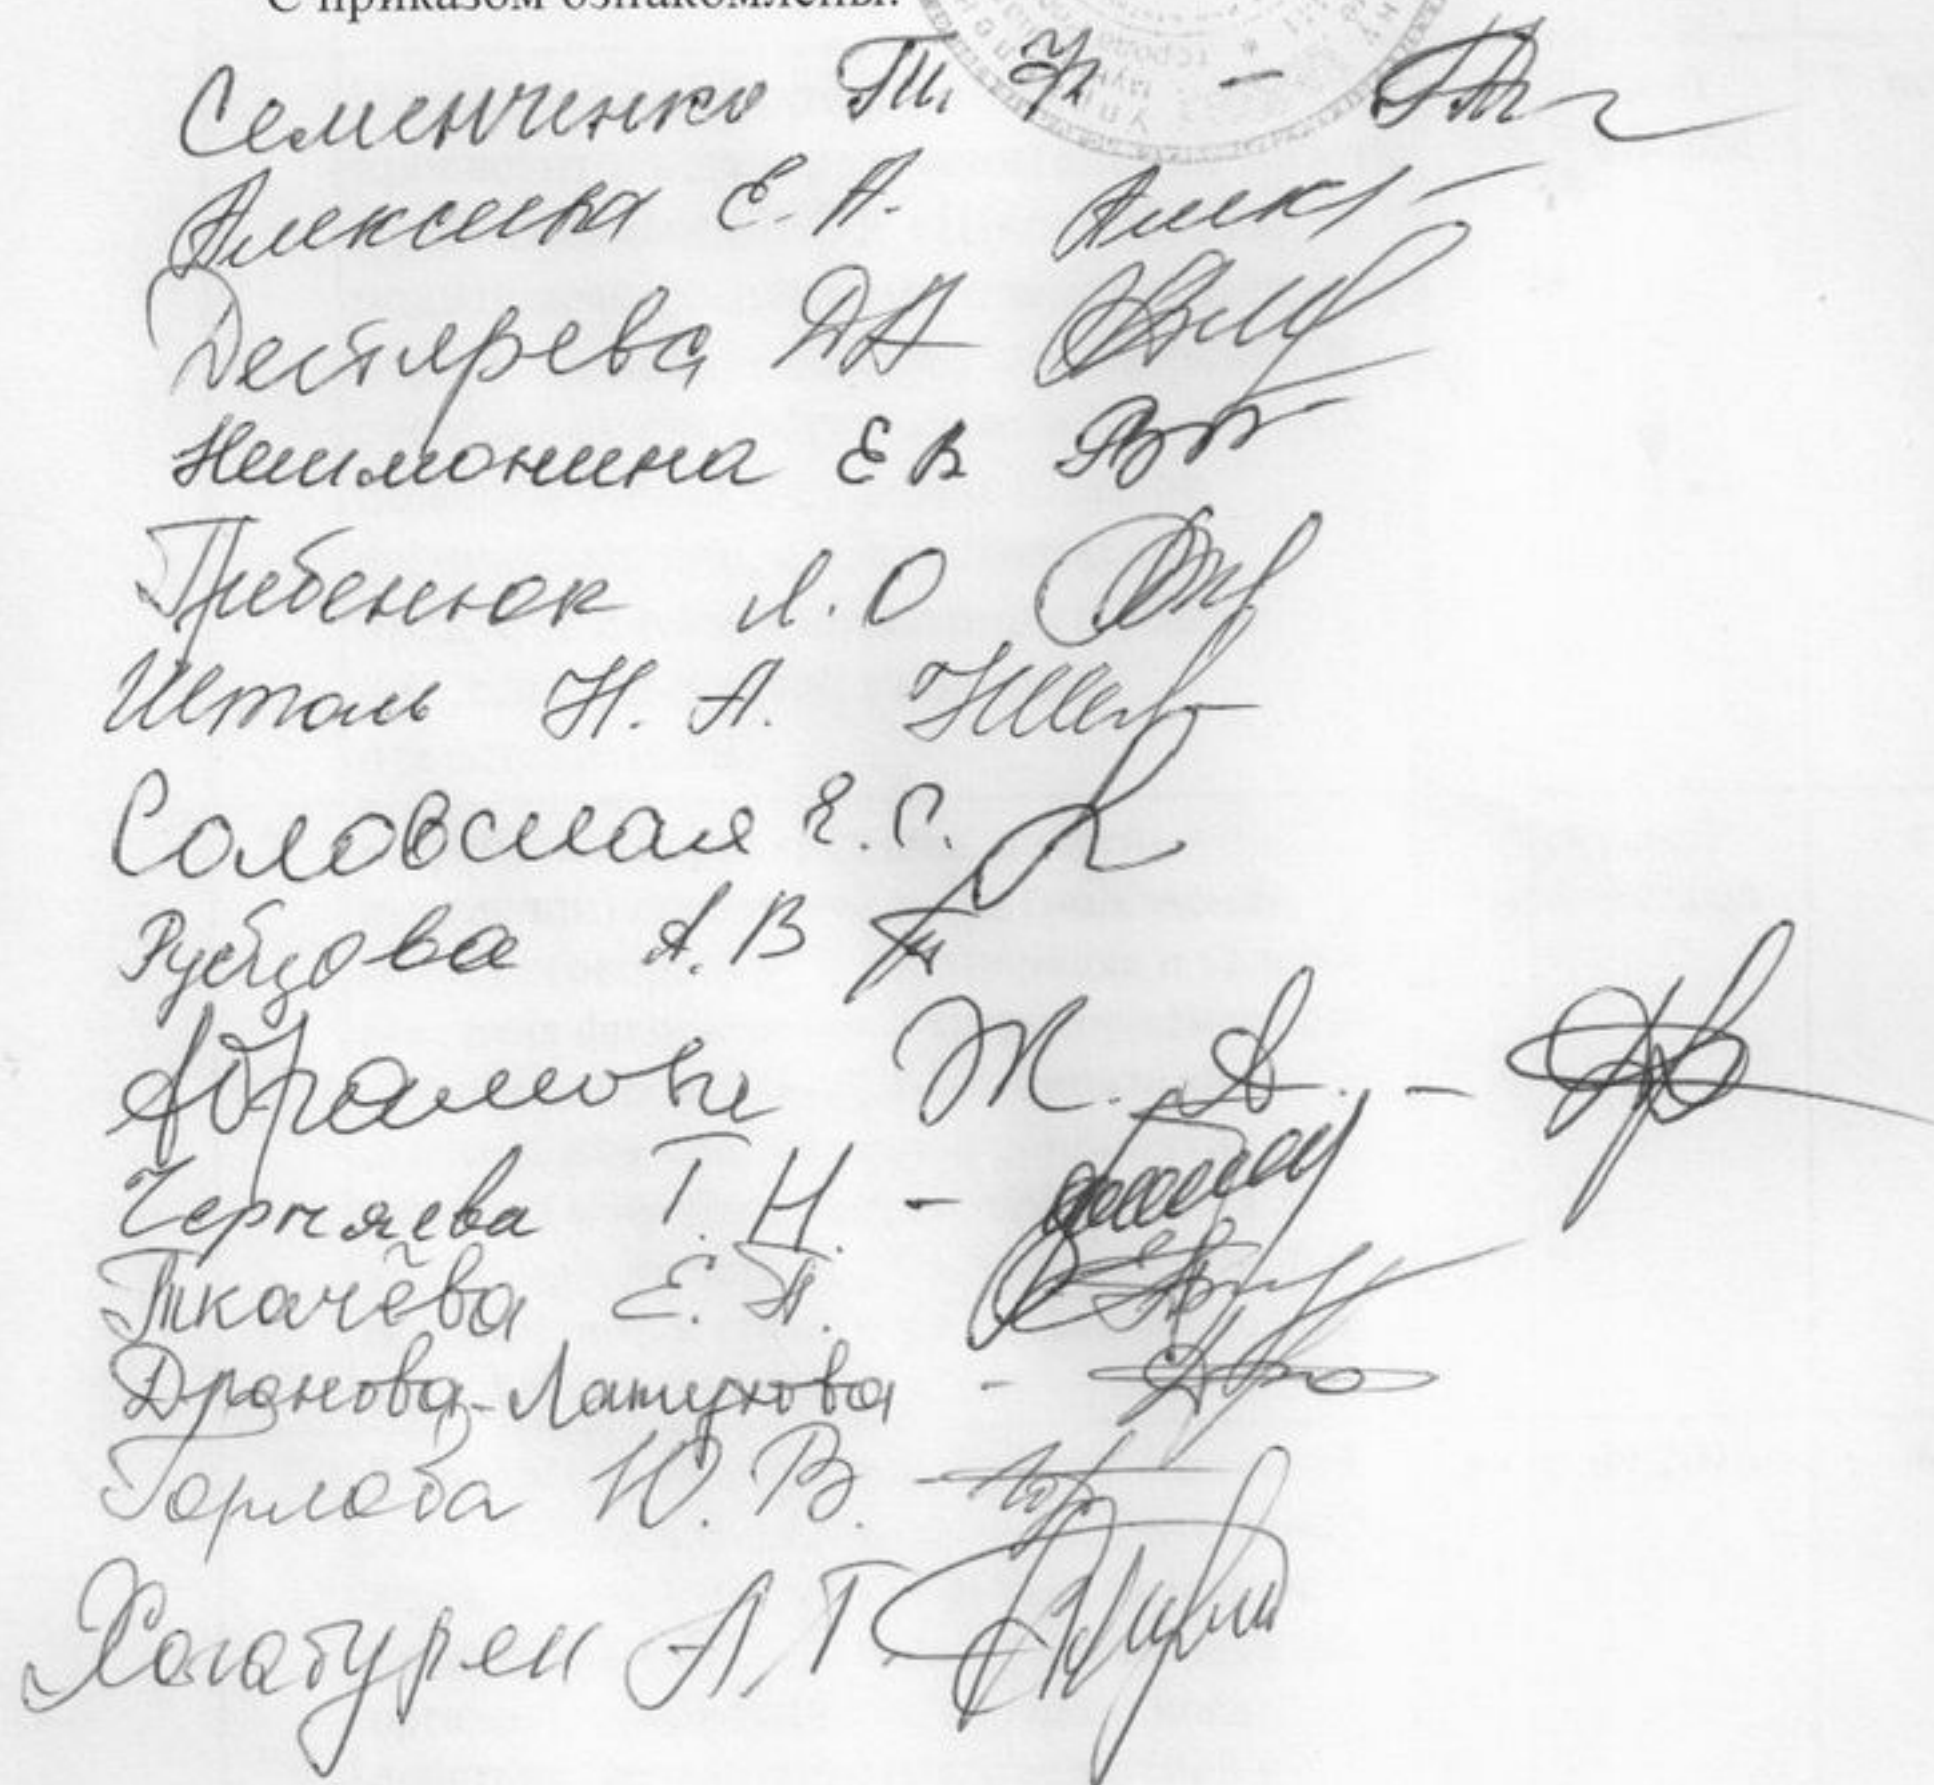 С приказом ознакомлены:
Семенченко Т. Ф. -
Алексеева Е. А.
Дегтярева ДА
Е В
Гребенюк Л. О
Шталь Н. А.
Е. С.
Рубцова А. В
Абрамова Ж. А. -
Черняева Т. Н. -
Ткачёва Е. П.
Дронова-Латухова -
Горлова Ю. В.
А. Г.